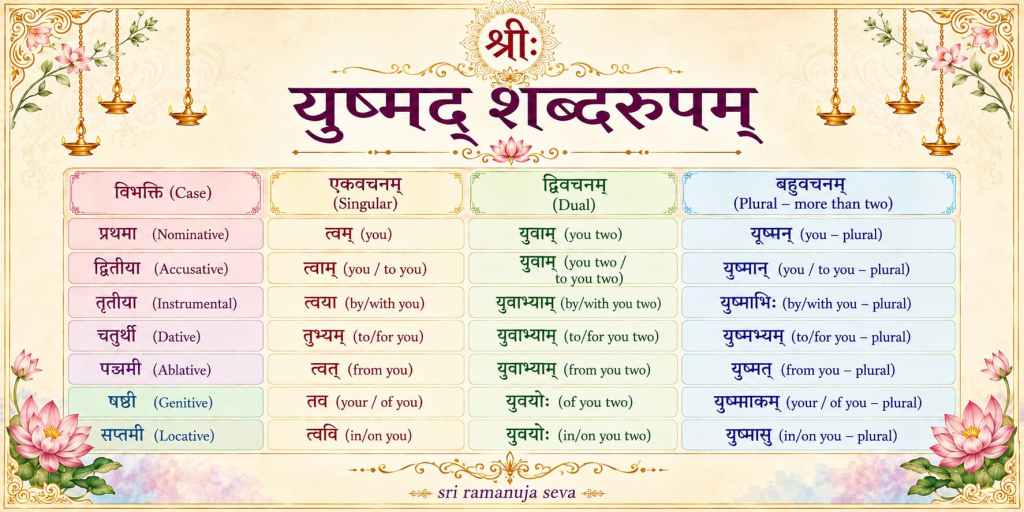 श्रीः
युष्मद् शब्दरुपम्
विभक्ति (Case) एकवचनम् (Singular) द्विवचनम् (Dual) बहुवचनम् (Plural – more than two)
प्रथमा (Nominative) त्वम् (you) युवाम् (you two) यूष्मन् (you – plural)
द्वितीया (Accusative) त्वाम् (you / to you) युवाम् (you two / to you two) युष्मान् (you / to you – plural)
तृतीया (Instrumental) त्वया (by/with you) युवाभ्याम् (by/with you two) युष्माभिः (by/with you – plural)
चतुर्थी (Dative) तुभ्यम् (to/for you) युवाभ्याम् (to/for you two) युष्मभ्यम् (to/for you – plural)
(Ablative) त्वत् (from you) युवाभ्याम् (from you two) युष्मत् (from you – plural)
षष्ठी (Genitive) तव (your / of you) युवयोः (of you two) (your / of you – plural)
सप्तमी (Locative) त्ववि (in/on you) युवयोः (in/on you two) युष्मासु (in/on you – plural)
sri ramanuja seva